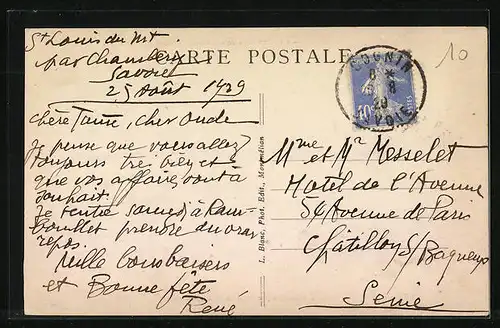 St Louis du Mt
par Chambéry
Savoie
25 Août 1929
CARTE POSTALE
COGNIN
SAVOIE
40c
chère Tante, cher Oncle
Je pense que vous allez
toujours très bien et
que vos affaires vont à
souhait.
Je rentre samedi à Ram-
bouillet prendre du vrai
repos.
Mille bons baisers
et Bonne fête
René
L. Blanc, Phot. Edit., Montmélian
Mme et Mr Messelet
Hotel de l'Avenue
54 Avenue de Paris
Châtillon s/ Bagneux
Seine
10